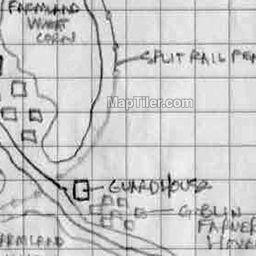 FARMLAND
WHEAT
CORN
SPLIT RAIL FEN
MapTiler.com
GUARDHOUSE
GOBLIN
FARMER
HOVE
FARMLAND